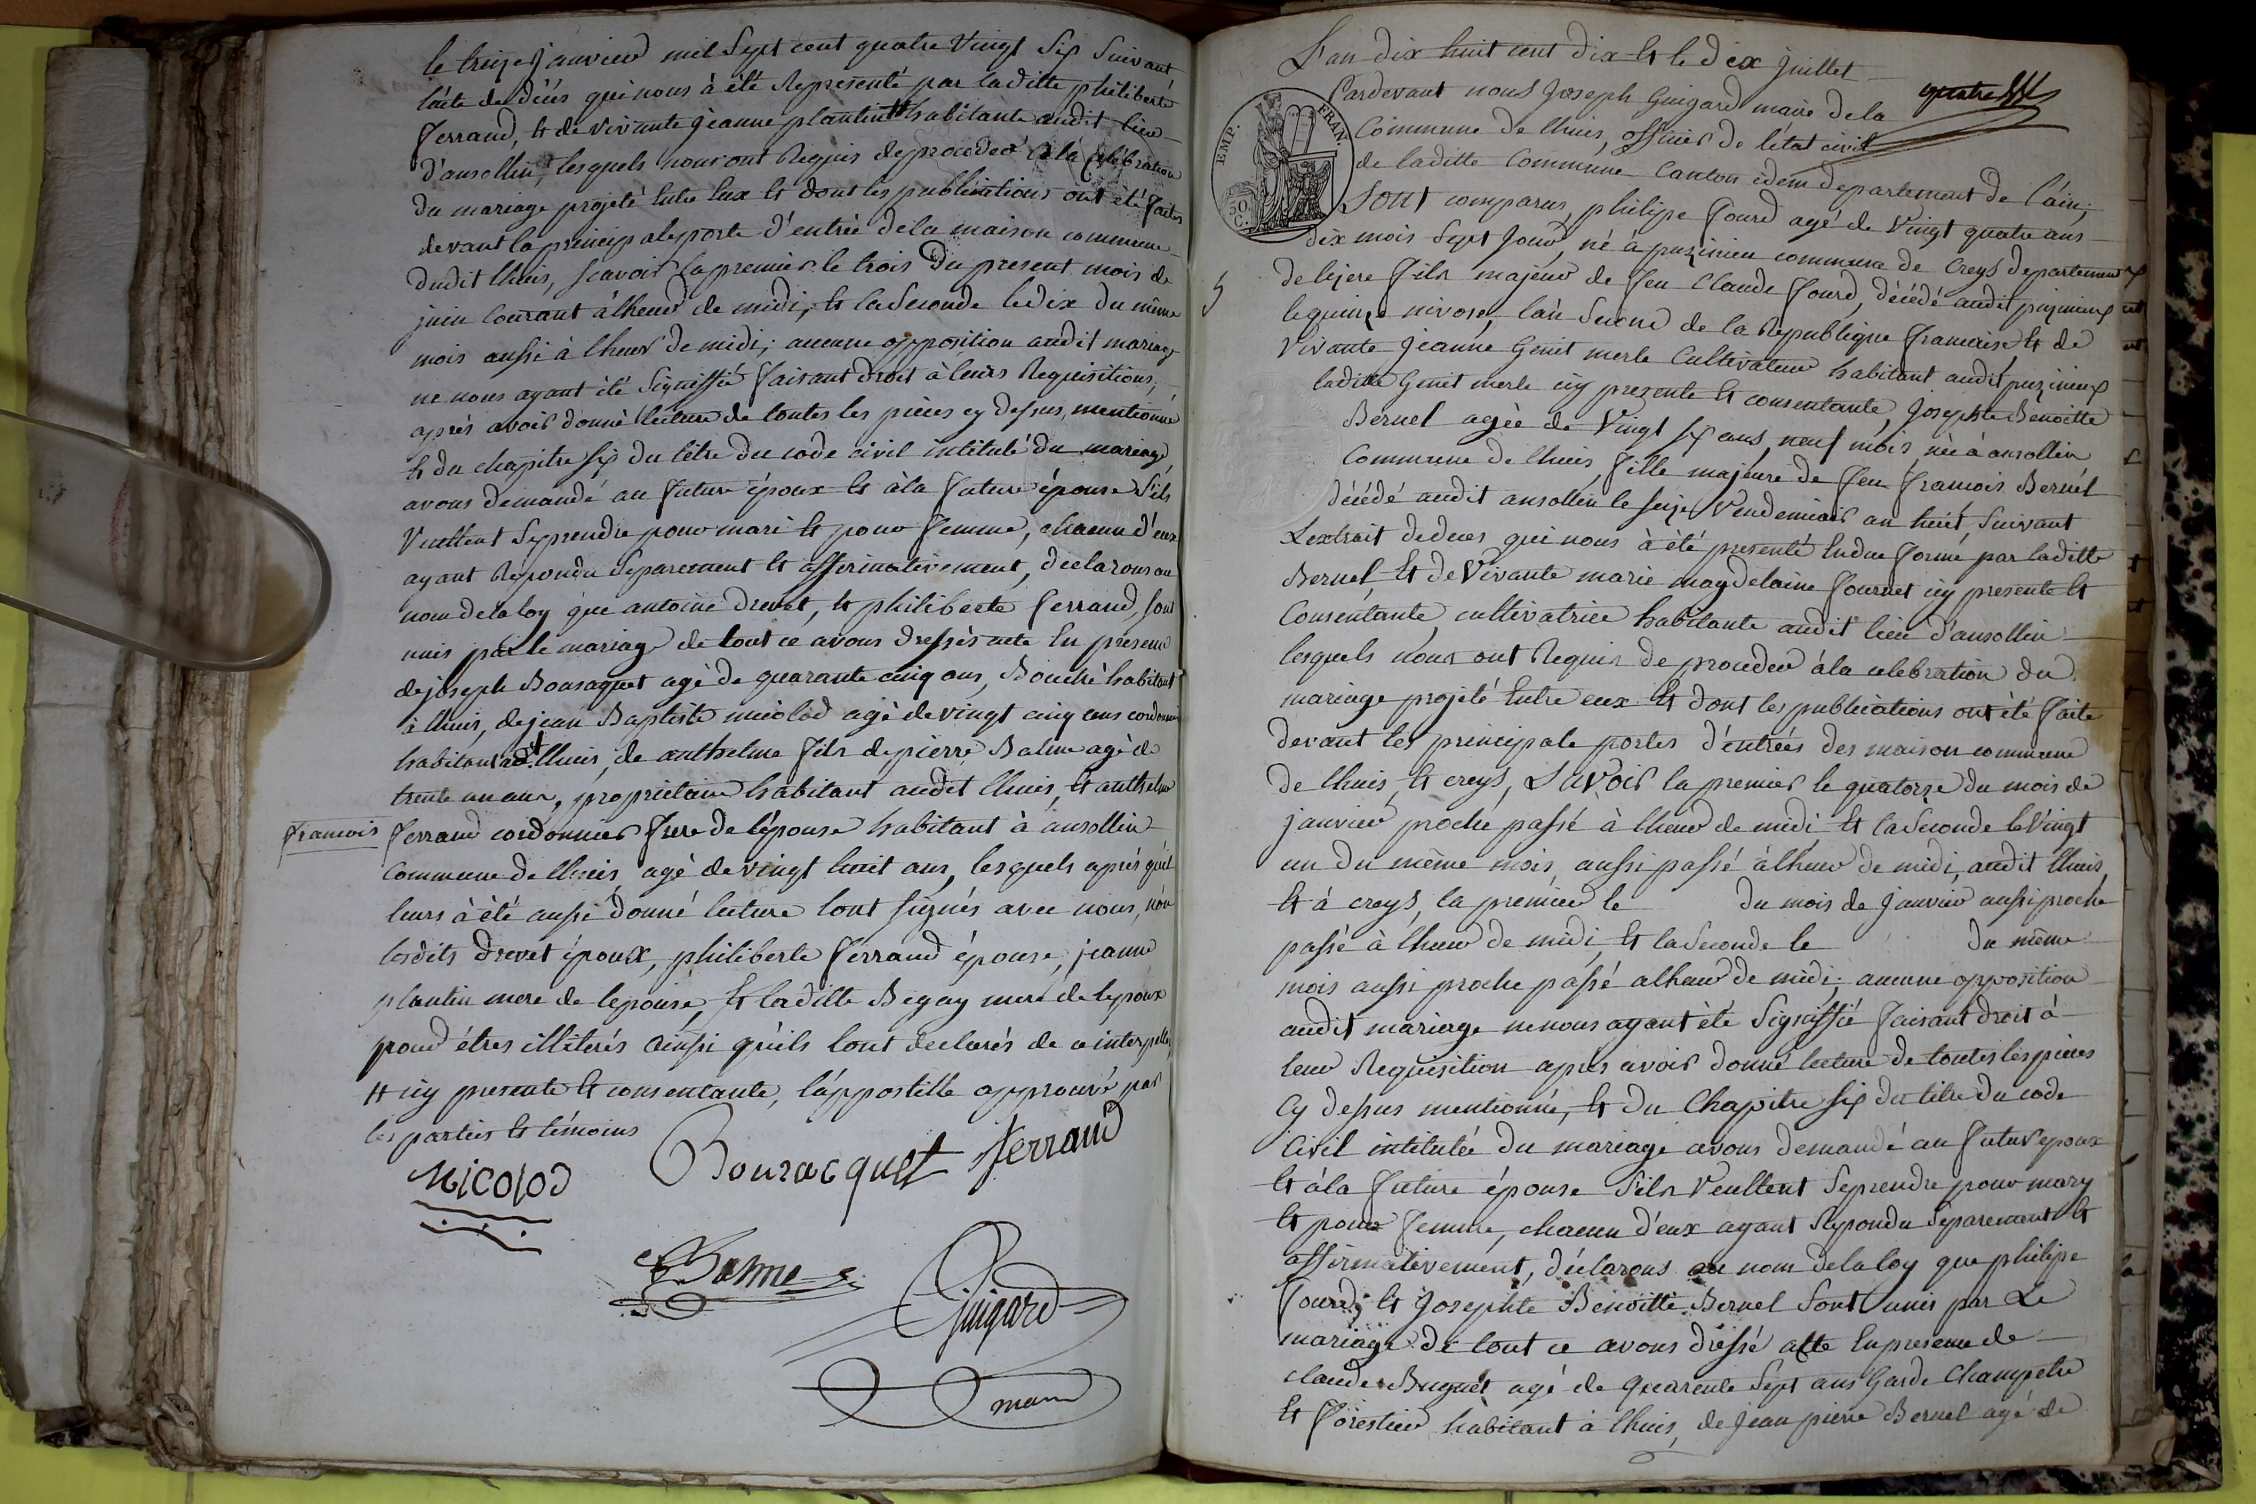 le treize janvier mil Sept cent quatre Vingt Six Suivant
l'acte de décés qui nous à été Representé par laditte philiberte
ferrand, et de vivante jeanne plantin habitante audit lieu
d'ansollin, lesquels nous ont Requis de proceder à la Celébration
du mariage projeté Entre Eux et dont les publications ont été faites
devant la principale porte d'entrée de la maison commune
dudit lhuis, scavoir la premier le trois du present mois de
juin Courant à lheur de midi, et la Seconde le dix du même
mois aussi à lheur de midi; aucune opposition audit mariage
ne nous ayant été Signiffié faisant droit à leurs Requisitions,
après avoir donné lecture de toutes les pièces cy dessus, mentionné
et du chapitre six du titre du code civil intitulé du mariage
avons demandé au future époux et à la future épouse S'ils
Veullent Se prendre pour mari et pour femme, chacun d'eux
ayant Repondu Separement et affirmativement, declarons au
nom de la loy que antoine drevet, et philiberte ferrand, sont
unis par le mariage de tout ce avons dressés acte En presence
de joseph Bonsaquet agé de quarante cinq ans, Bouché habitant
à lhuis, de jean Baptiste nicolod agé de vingt cinq ans cordonnier
habitant lhuis, de anthelme fils de pierre Balme agé de
trente un ans, proprietaire habitant audit lhuis, et anthelme
francois ferrand cordonnier frere de l'épouse habitant à ansollin
Commune de lhuis agé de vingt huit ans, lesquels après qu'il
leurs à été aussi donné lecture sont signés avec nous, non
lesdits drevet époux, philiberte ferrand épouse, jeanne
plantin mere de lepouse, et laditte Begay mere de lepoux
pour étres illiterés ainsi qu'ils sont declarés de ce interpellés,
et icy presente et consentante, l'appostille approuvé par
les parties et témoins
Nicolod Bonsacquet ferrand
Balme
Guigard
maire
L'an dix huit cent dix et le dix juillet
Pardevant nous Joseph Guigard maire de la quatre
Commune de lhuis, officier de l'état civil
EMP. FRAN.
de laditte Commune Canton idem departement de l'ain;
50. C.
Sont comparus, philipe fourd agé de Vingt quatre ans
dix mois Sept Jour, né à puzinieu commune de Creys departement
de lizere fils majeur de feu Claude fourd, décédé audit puzinieux
le quinze nivose, l'an Second de la Republique francaise et de
Vivante jeanne Genit merle Cultivateur habitant audit puzinieux
laditte Genit merle icy presente et consentante, Josephte Benoitte
Bernel agée de Vingt six ans neuf mois née à ansollin
Commune de lhuis fille majeure de feu francois Bernel
décédé audit ansollin le seize Vendemiair an huit Suivant
L'extrait de deces qui nous à été presenté En due forme par laditte
Bernel et de Vivante marie magdelaine fournet icy presente et
Consentante cultivatrice habitante audit lieu d'ansollin
lesquels nous ont Requis de proceder à la celebration du
mariage projeté Entre eux et dont les publications ont été faite
devant les principale portes d'entrées des maison commune
de lhuis, et creys, savoir la premier le quatorze du mois de
janvier proche passé à lheur de midi et la Seconde le Vingt
un du même mois, aussi passé à lheur de midi, audit lhuis,
et à creys, la premier le du mois de janvier aussi proche
passé à lheur de midi, et la Seconde le du même
mois aussi proche passé a lheur de midi; aucune opposition
audit mariage ne nous ayant été Signiffié faisant droit à
leur Requisition après avoir donné lecture de toutes les pièces
Cy dessus mentionné, et du Chapitre six du titre du code
Civil intitulée du mariage avons demandé au futur epoux
et à la future épouse S'ils Veullent Se prendre pour mary
et pour femme, chacun d'eux ayant Repondu Séparement et
affirmativement, déclarons au nom de la loy que philipe
fourd, et Josephte Benoitte Bernel Sont unis par Le
mariage de tout ce avons dréssé acte En presence de
claude Buguet agé de quarente Sept ans Garde Champetre
et forestier habitant à lhuis, de jean pierre Bernel agé de